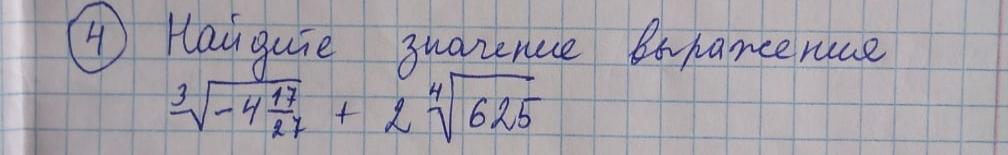 ④ Найдите значение выражения
∛(-4 17/27) + 2 ∜625